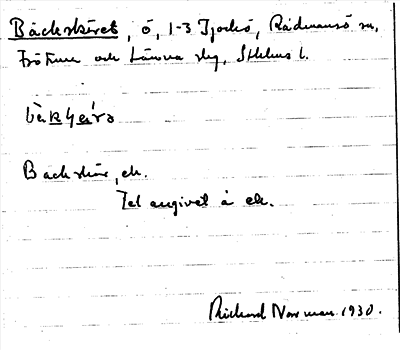 Bäckskäret, ö, 1-3 Tjockö, Rådmansö sn,
Frötuna och Länna skg, Sthlms l.
bàkʃæ̀rə
Backskär, ek.
Ej angivet å ek.
Rickard Norman 1930.